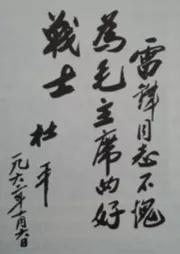 雷锋同志不愧
为毛主席的好
戰士
杜平
一九六六年一月六日